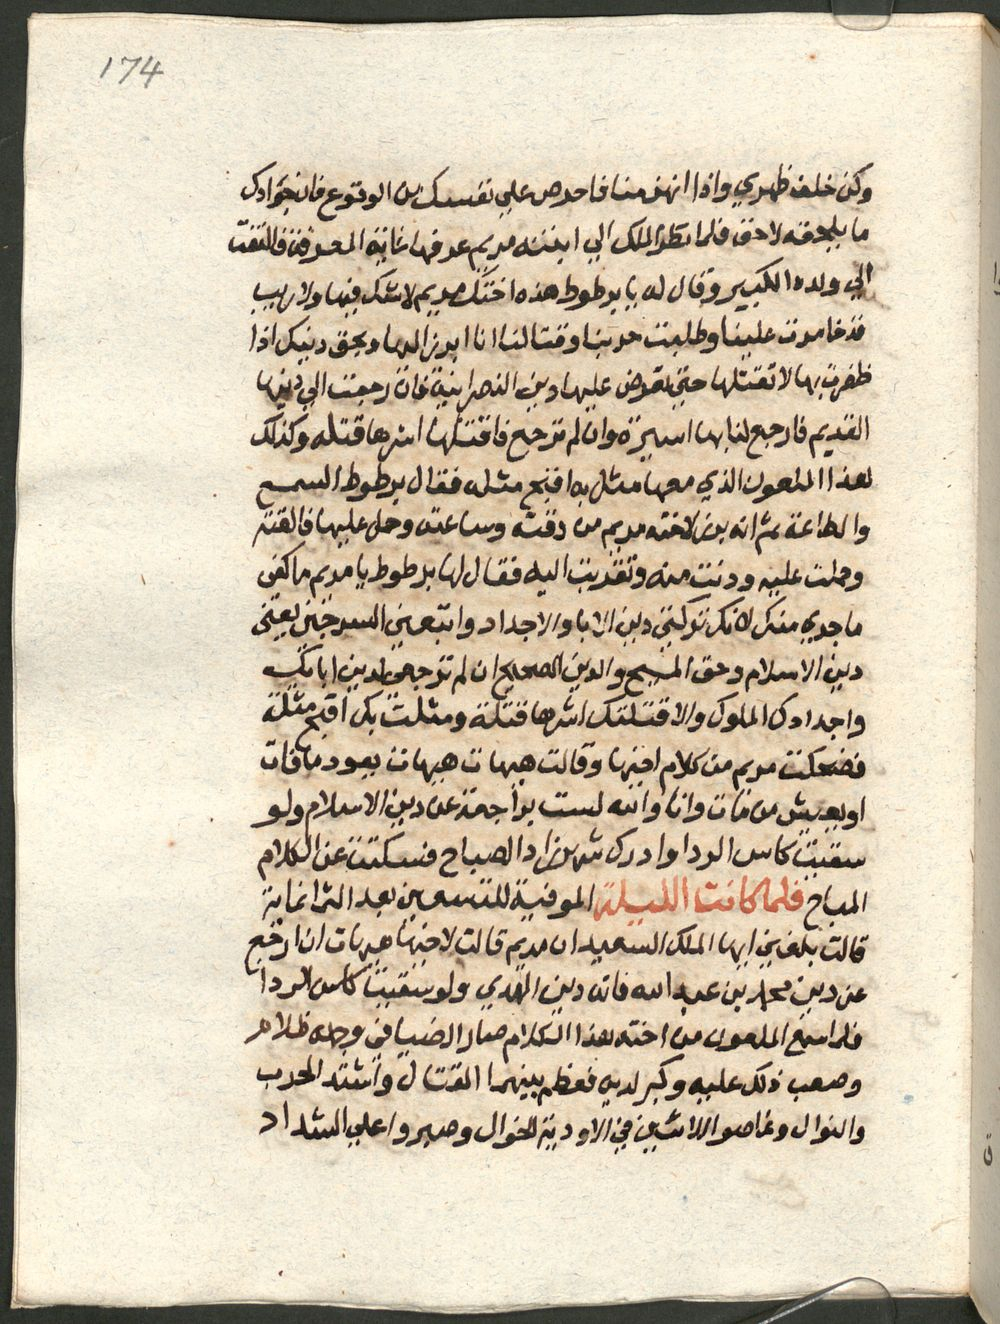 174
وكن خلف ظهري واذا انهزمنا فاحرص علي نفسك من الوقوع فان جوادك
ما يلحقه لاحق فلما نظر الملك الي ابنته مريم عرفها غاية المعرفة فالتفت
الي ولده الكبير وقال له يا برطوط هذه اختك مريم لا شك فيها ولا ريب
قد خامرت علينا وطلبت حربنا وقتالنا انا ابرز اليها وبحق دينك اذا
ظفرت بها لا تقتلها حتي تعرض عليها دين النصرانية فان رجعت الي دينها
القديم فارجع لنا بها اسيرة وان لم ترجع فاقتلها اشرها قتله وكذلك
لهذا الملعون الذي معها مثل به اقبح مثله فقال برطوط السمع
والطاعة ثم انه برز لاخته مريم من وقته وساعته وحمل عليها فالقته
وحملت عليه ودنت منه وتقربت اليه فقال لها برطوط يا مريم ما كفي
ما جري منك لانك تركتي دين الابا والاجداد واتبعتي السرجين يعني
دين الاسلام وحق المسيح والدين الصحيح ان لم ترجعي لدين اباتك
واجدادك الملوك والا قتلتك اشرها قتلة ومثلت بك اقبح مثلة
فضحكت مريم من كلام اخيها وقالت هيهات هيهات يعود ما فات
او يعيش من مات وانا والله لست براجعة عن دين الاسلام ولو
سقيت كاس الردا وادرك شهرزاد الصباح فسكتت عن الكلام
المباح فلما كانت الليلة الموفية للتسعين بعد الثمانماية
قالت بلغني ايها الملك السعيد ان مريم قالت لاخيها هيهات ان ارجع
عن دين محمد بن عبد الله فانه دين الهدي ولو سقيت كاس الردا
فلما سمع الملعون من اخته هذا الكلام صار الضيا في وجهه ظلام
وصعب ذلك عليه وكبر لديه فعظم بينهما القتال واشتد الحرب
والنوال وغاصوا الاثنين في الاودية الخوال وصبروا علي الشداد